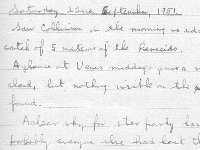 Saturday 22nd September, 1951.
Saw Collinson in the morning re
catch of 5 meteors of the Perseids.
A glance at Venus midday, gave a
cloud, but nothing visible on the
found.
sky, for star party
probably everyone else had